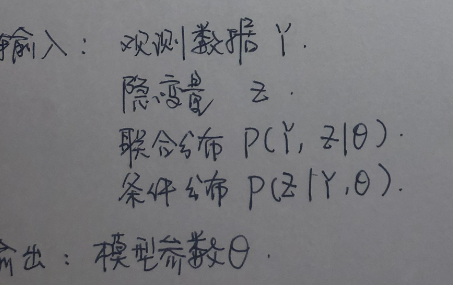 输入: 观测数据 Y.
隐变量 Z.
联合分布 P(Y, Z|θ).
条件分布 P(Z|Y,θ).
输出: 模型参数θ.